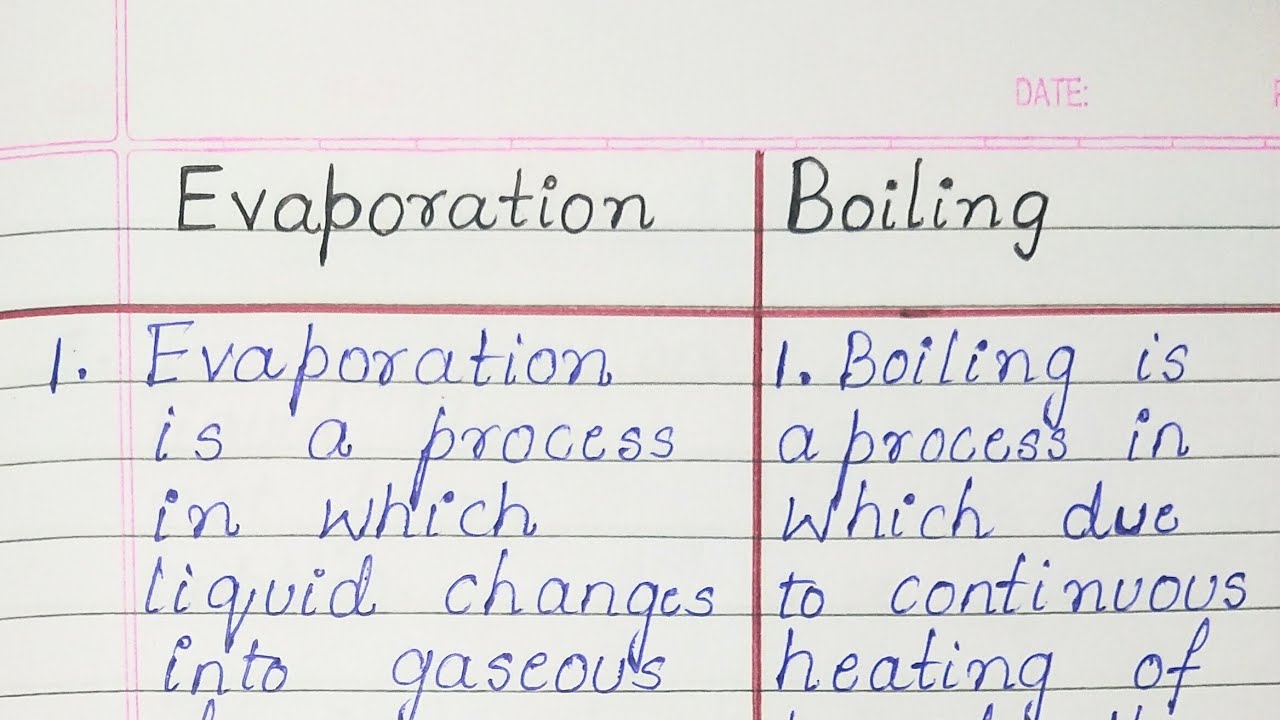 DATE:
Evaporation
Boiling
1. Evaporation
is a process
in which
liquid changes
into gaseous
1. Boiling is
a process in
which due
to continuous
heating of